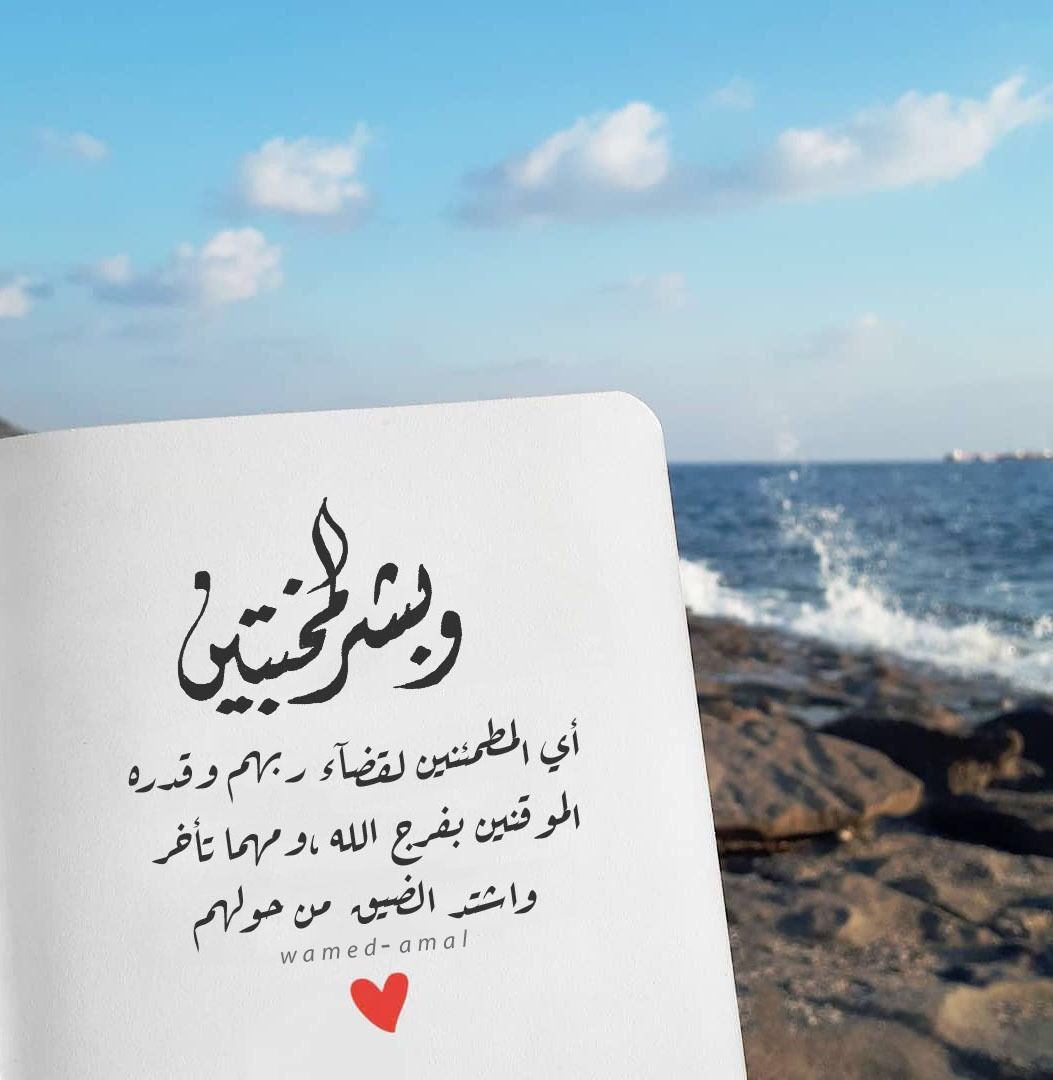 وبشر المخبتين
أي المطمئنين لقضآء ربهم وقدره
الموقنين بفرج الله ،ومهما تأخر
واشتد الضيق من حولهم
wamed-amal